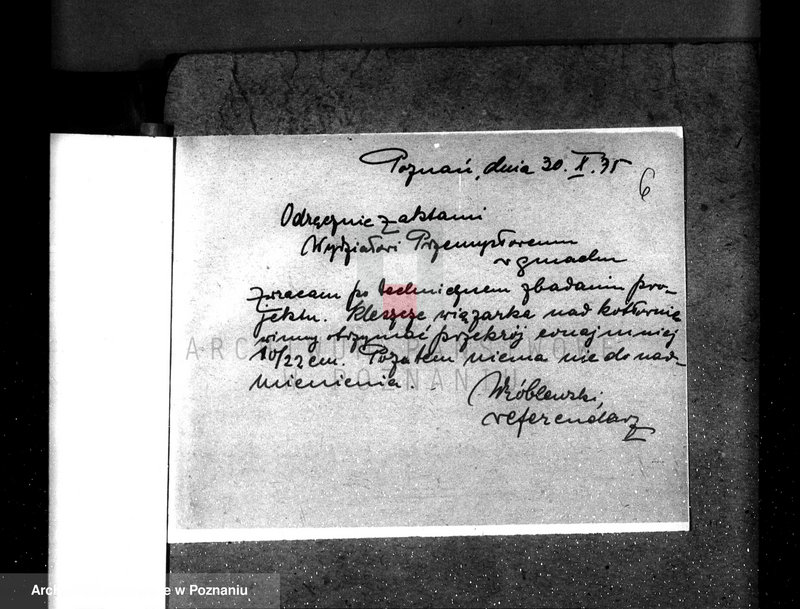 Poznań, dnia 30.X.35
6
Odręcznie z aktami
Wydziałowi Przemysłowemu
w gmachu
zwracam po technicznem zbadaniu pro-
jektu. Kleszcze wiązarka nad kotłownią
winny otrzymać przekrój conajmniej
10/22 cm. Pozatem niema nic do nad-
mienienia.
Wróblewski,
referendarz
ARCHIWUM PAŃSTWOWE
W POZNANIU
Archiwum Państwowe w Poznaniu